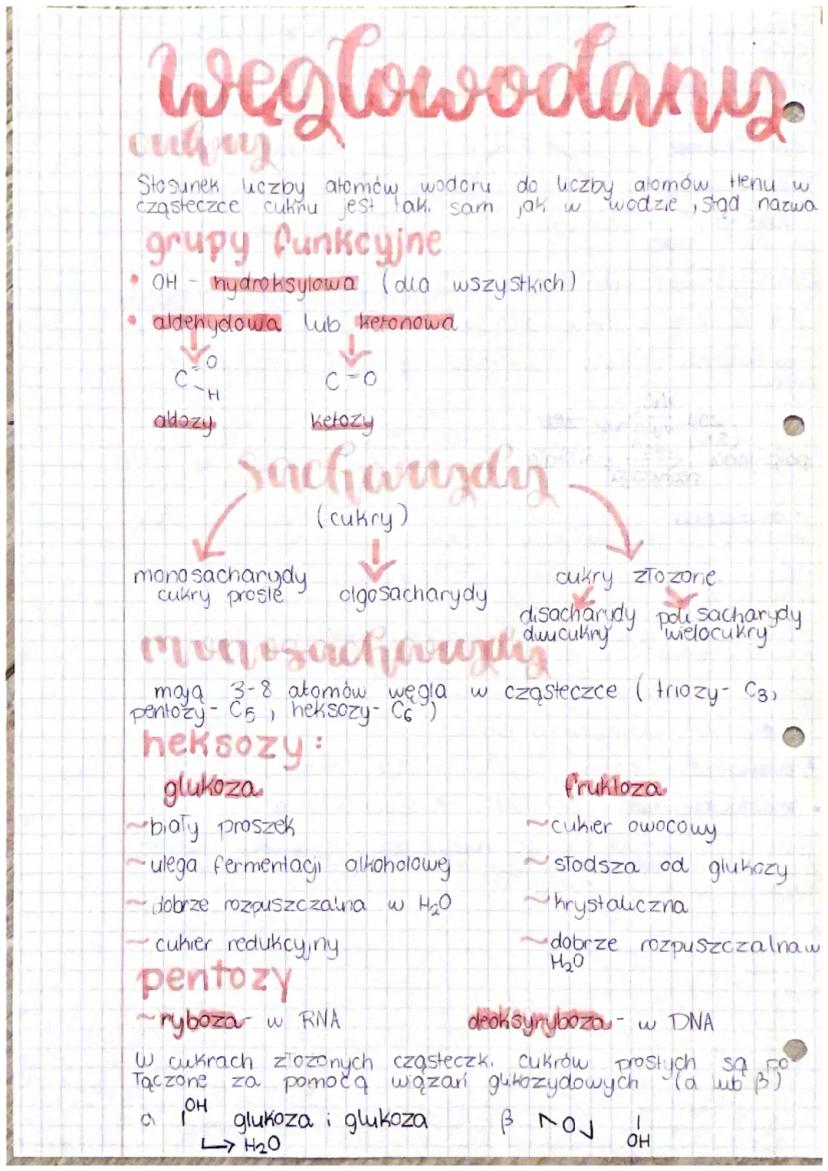 węglowodany
cukry
Stosunek liczby atomów wodoru do liczby atomów tlenu w
cząsteczce cukru jest taki sam jak w wodzie, stąd nazwa
grupy funkcyjne
• OH - hydroksylowa (dla wszystkich)
• aldehydowa lub ketonowa
C=O -H C=O
aldozy ketozy
sacharydy
(cukry)
monosacharydy olgosacharydy cukry złożone
cukry proste
disacharydy polisacharydy
dwucukry wielocukry
monosacharydy
mają 3-8 atomów węgla w cząsteczce (triozy- C3,
pentozy- C5, heksozy- C6)
heksozy:
glukoza fruktoza
~biały proszek ~cukier owocowy
~ulega fermentacji alkoholowej ~słodsza od glukozy
~dobrze rozpuszczalna w H2O ~krystaliczna
~cukier redukcyjny ~dobrze rozpuszczalna w
H2O
pentozy
~ryboza- w RNA deoksyryboza- w DNA
W cukrach złożonych cząsteczki cukrów prostych są po
łączone za pomocą wiązań glikozydowych (α lub β)
α OH glukoza i glukoza β O OH
→ H2O